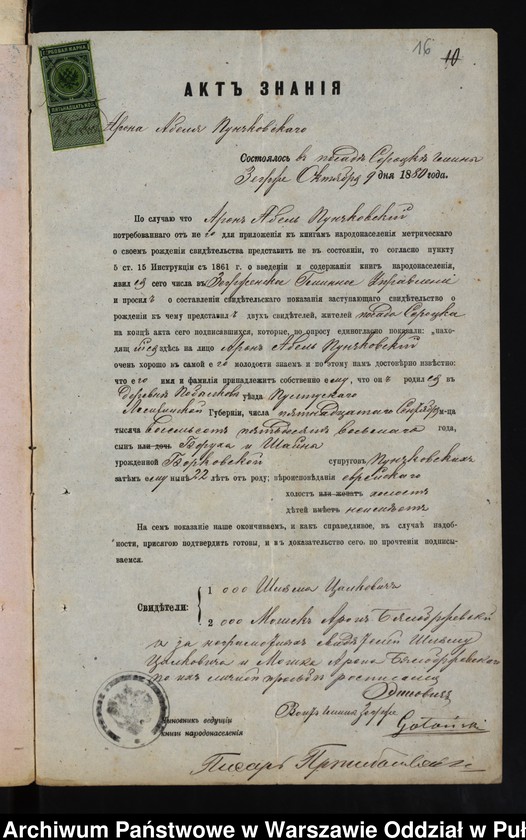 16 10
ГЕРБОВАЯ МАРКА
ПЯТНАДЦАТЬ КОП.
АКТЪ ЗНАНІЯ
Арона Абеля Пунжковскаго
Состоялось въ посадѣ Сероцкѣ гмины
Зегрже Октября 9 дня 1880 года.
По случаю что Аронъ Абель Пунжковскій
потребованнаго отъ него для приложенія къ книгамъ народонаселенія метрическаго
о своемъ рожденіи свидѣтельства представить не въ состояніи, то согласно пункту
5 ст. 15 Инструкціи съ 1861 г. о введеніи и содержаніи книгъ народонаселенія,
явился сего числа въ Зегржское Гминное Управленіе
и просилъ о составленіи свидѣтельскаго показанія заступающаго свидѣтельство о
рожденіи къ чему представилъ двухъ свидѣтелей, жителей посада Сероцка
на концѣ акта сего подписавшихся, которые, по допросу единогласно показали: „находящійся здѣсь на лицо Аронъ Абель Пунжковскій
очень хорошо въ самой его молодости знаемъ и по этому намъ достовѣрно извѣстно:
что его имя и фамилія принадлежитъ собственно ему, что онъ родился въ
деревнѣ уѣзда Пултускаго
Ломжинской Губерніи, числа пятнадцатаго Сентября м-ца
тысяча восемьсотъ пятьдесятъ восьмаго года,
сынъ или дочь Боруха и Шайны
урожденной Борковской супруговъ Пунжковскихъ
затѣмъ ему 22 лѣтъ отъ роду; вѣроисповѣданія еврейскаго
холостъ или женатъ холостъ
дѣтей вмѣстѣ неимѣетъ
На семъ показаніе наше окончиваемъ, и какъ справедливое, въ случаѣ надоб-
ности, присягою подтвердить готовы, и въ доказательство сего: по прочтеніи подписы-
ваемся.
Свидѣтели:
1 ооо Шлема Цалковичъ
2 ооо Мошекъ Аронъ
а за неграмотныхъ свидѣтелей Шлему
Цалковича и Мошка Арона
по ихъ личной просьбѣ
Войтъ гмины Зегрже
Чиновникъ ведущій
книги народонаселенія
Писарь
Archiwum Państwowe w Warszawie Oddział w Puł